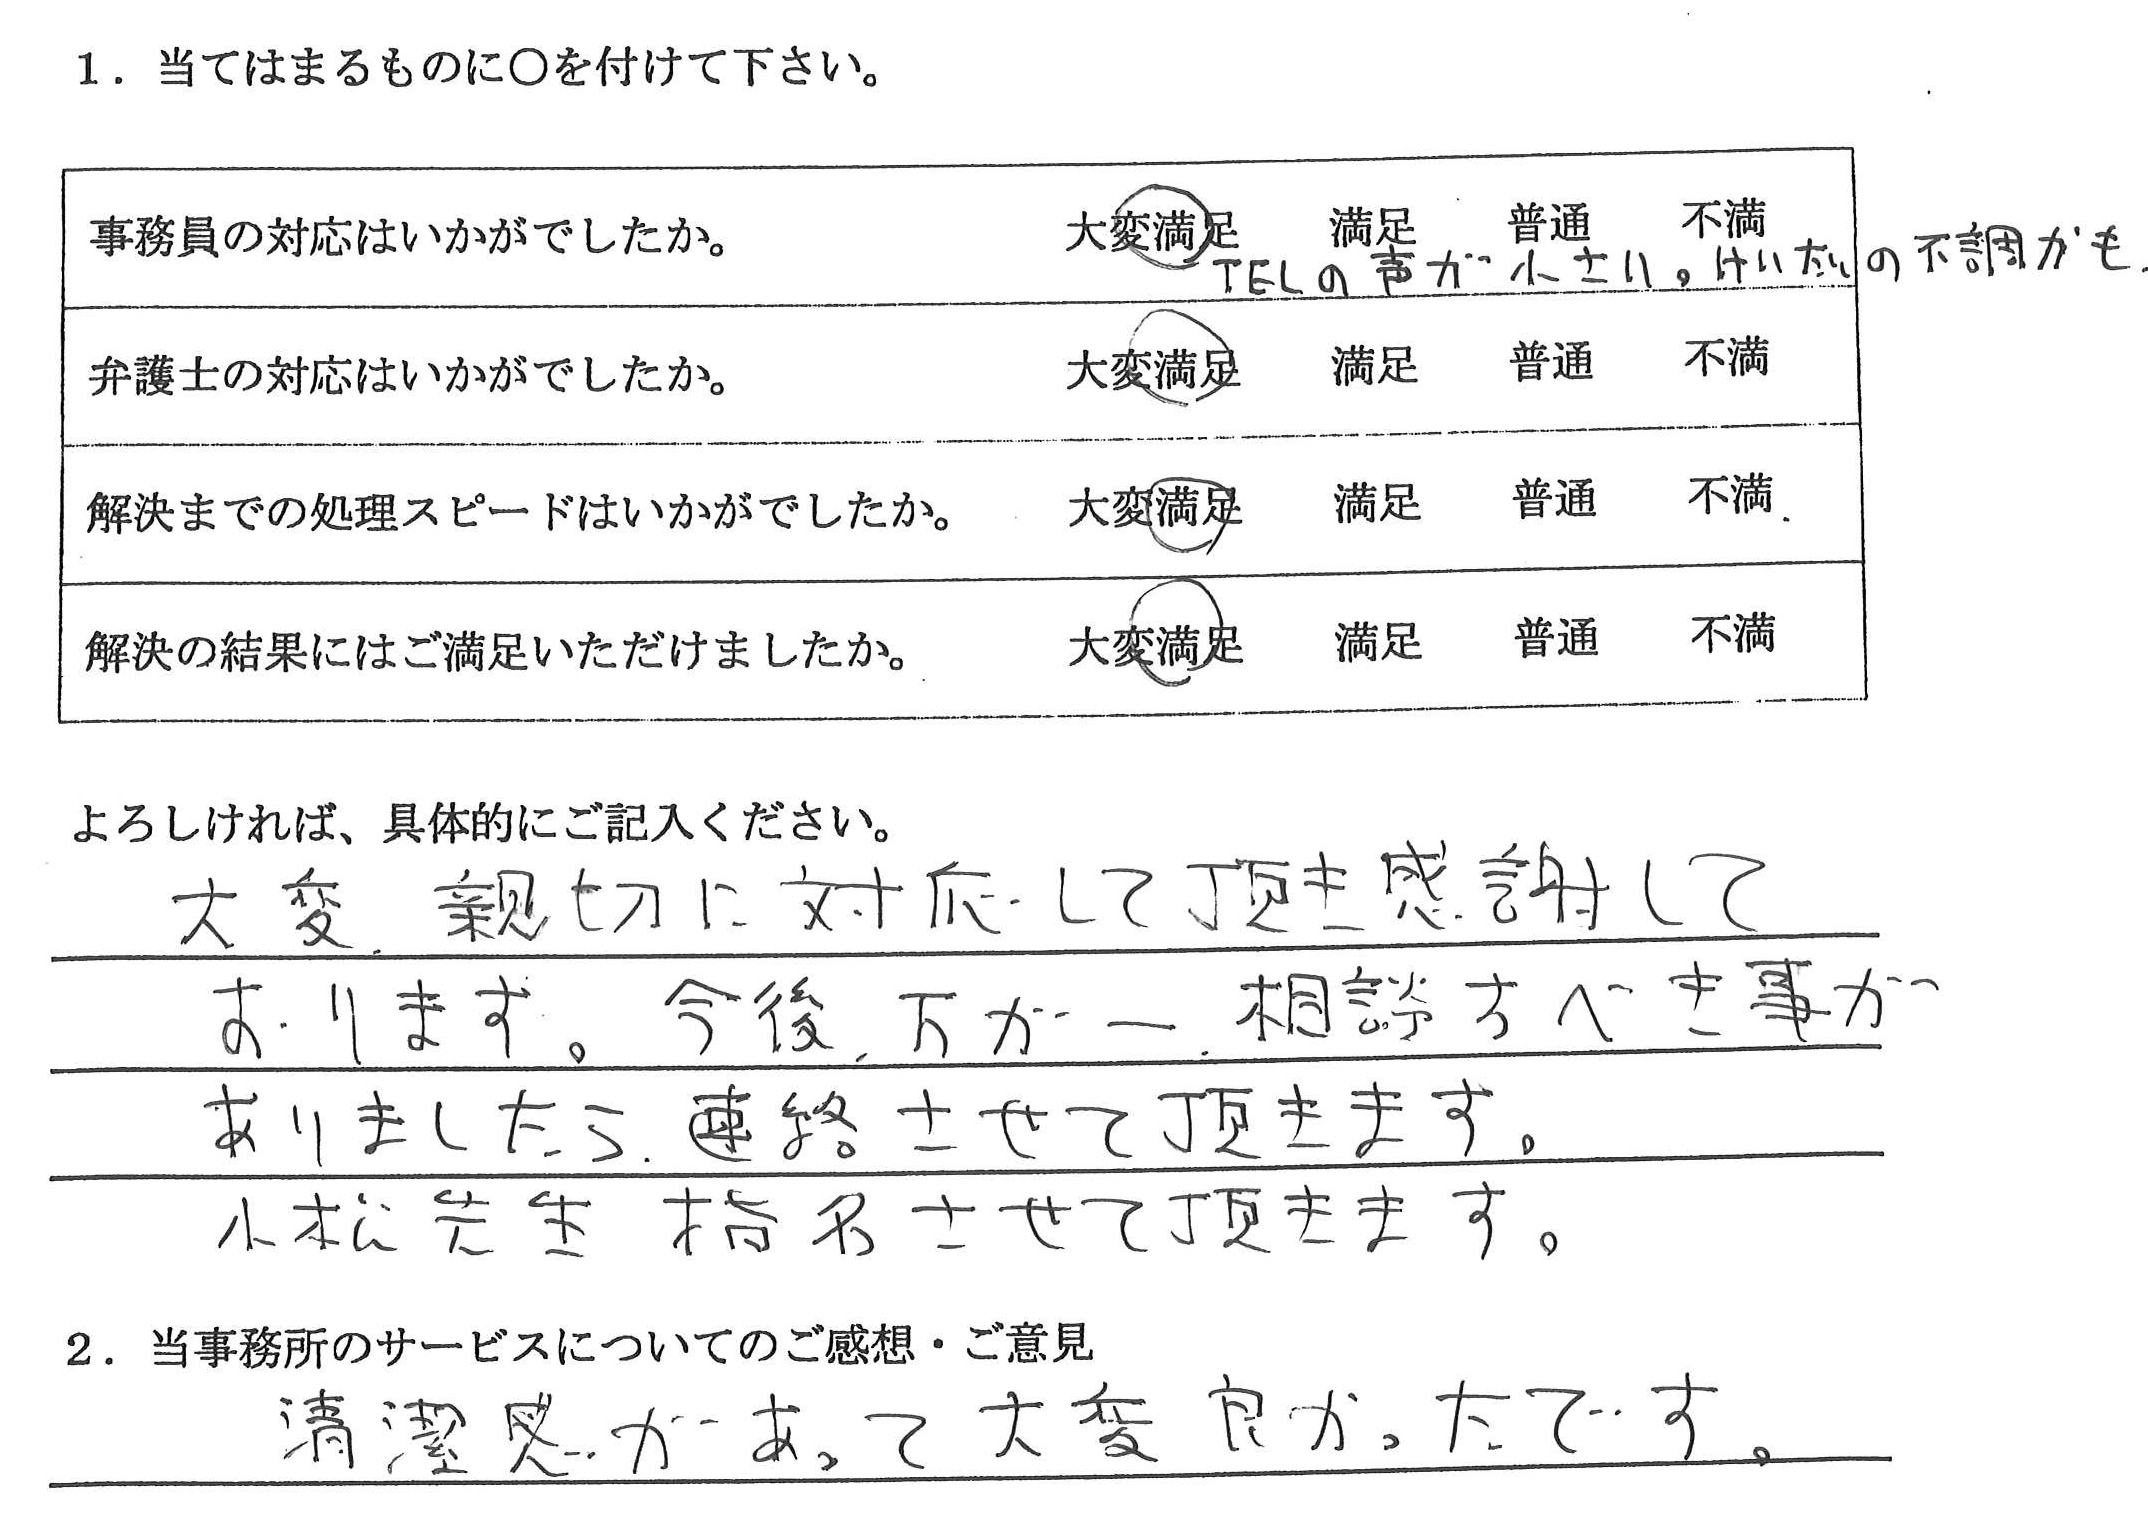 1．当てはまるものに〇を付けて下さい。
事務員の対応はいかがでしたか。 大変満足 満足 普通 不満
TELの声が小さい。けいたいの不調かも.
弁護士の対応はいかがでしたか。 大変満足 満足 普通 不満
解決までの処理スピードはいかがでしたか。 大変満足 満足 普通 不満
解決の結果にはご満足いただけましたか。 大変満足 満足 普通 不満
よろしければ、具体的にご記入ください。
大変、親切に対応して頂き感謝して
おります。今後、万が一、相談すべき事が
ありましたら、連絡させて頂きます。
小松先生 指名させて頂きます。
2．当事務所のサービスについてのご感想・ご意見
清潔感があって大変良かったです。